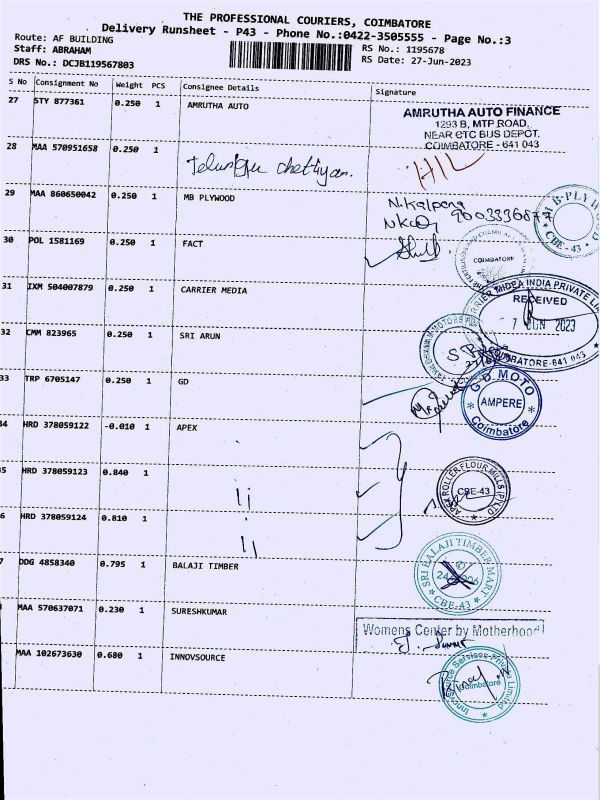 THE PROFESSIONAL COURIERS, COIMBATORE
Delivery Runsheet - P43 - Phone No.:0422-3505555 - Page No.:3
Route: AF BUILDING
Staff: ABRAHAM
DRS No.: DCJB119567803
RS No.: 1195678
RS Date: 27-Jun-2023
S No Consignment No Weight PCS Consignee Details Signature
27 STY 877361 0.250 1 AMRUTHA AUTO
AMRUTHA AUTO FINANCE
1293 B, MTP ROAD,
NEAR CTC BUS DEPOT.
COIMBATORE - 641 043
28 MAA 570951658 0.250 1
29 MAA 860650042 0.250 1 MB PLYWOOD
N.Kalpana
CBE-43
30 POL 1581169 0.250 1 FACT
COIMBATORE
31 IXM 504007879 0.250 1 CARRIER MEDIA
CARRIER MIDEA INDIA PRIVATE
RECEIVED
7 JUN 2023
COIMBATORE-641 043
32 CMM 823965 0.250 1 SRI ARUN
33 TRP 6705147 0.250 1 GD
G.D.MOTO
AMPERE
Coimbatore
34 HRD 378059122 -0.010 1 APEX
5 HRD 378059123 0.840 1
APEX ROLLER FLOUR MILLS (P) LTD
CBE-43
6 HRD 378059124 0.810 1
7 DDG 4858340 0.795 1 BALAJI TIMBER
SRI BALAJI TIMBER MART
CBE-43
MAA 570637071 0.230 1 SURESHKUMAR
Womens Center by Motherhood
MAA 102673630 0.680 1 INNOVSOURCE
Innovsource Services Private Limited
Coimbatore